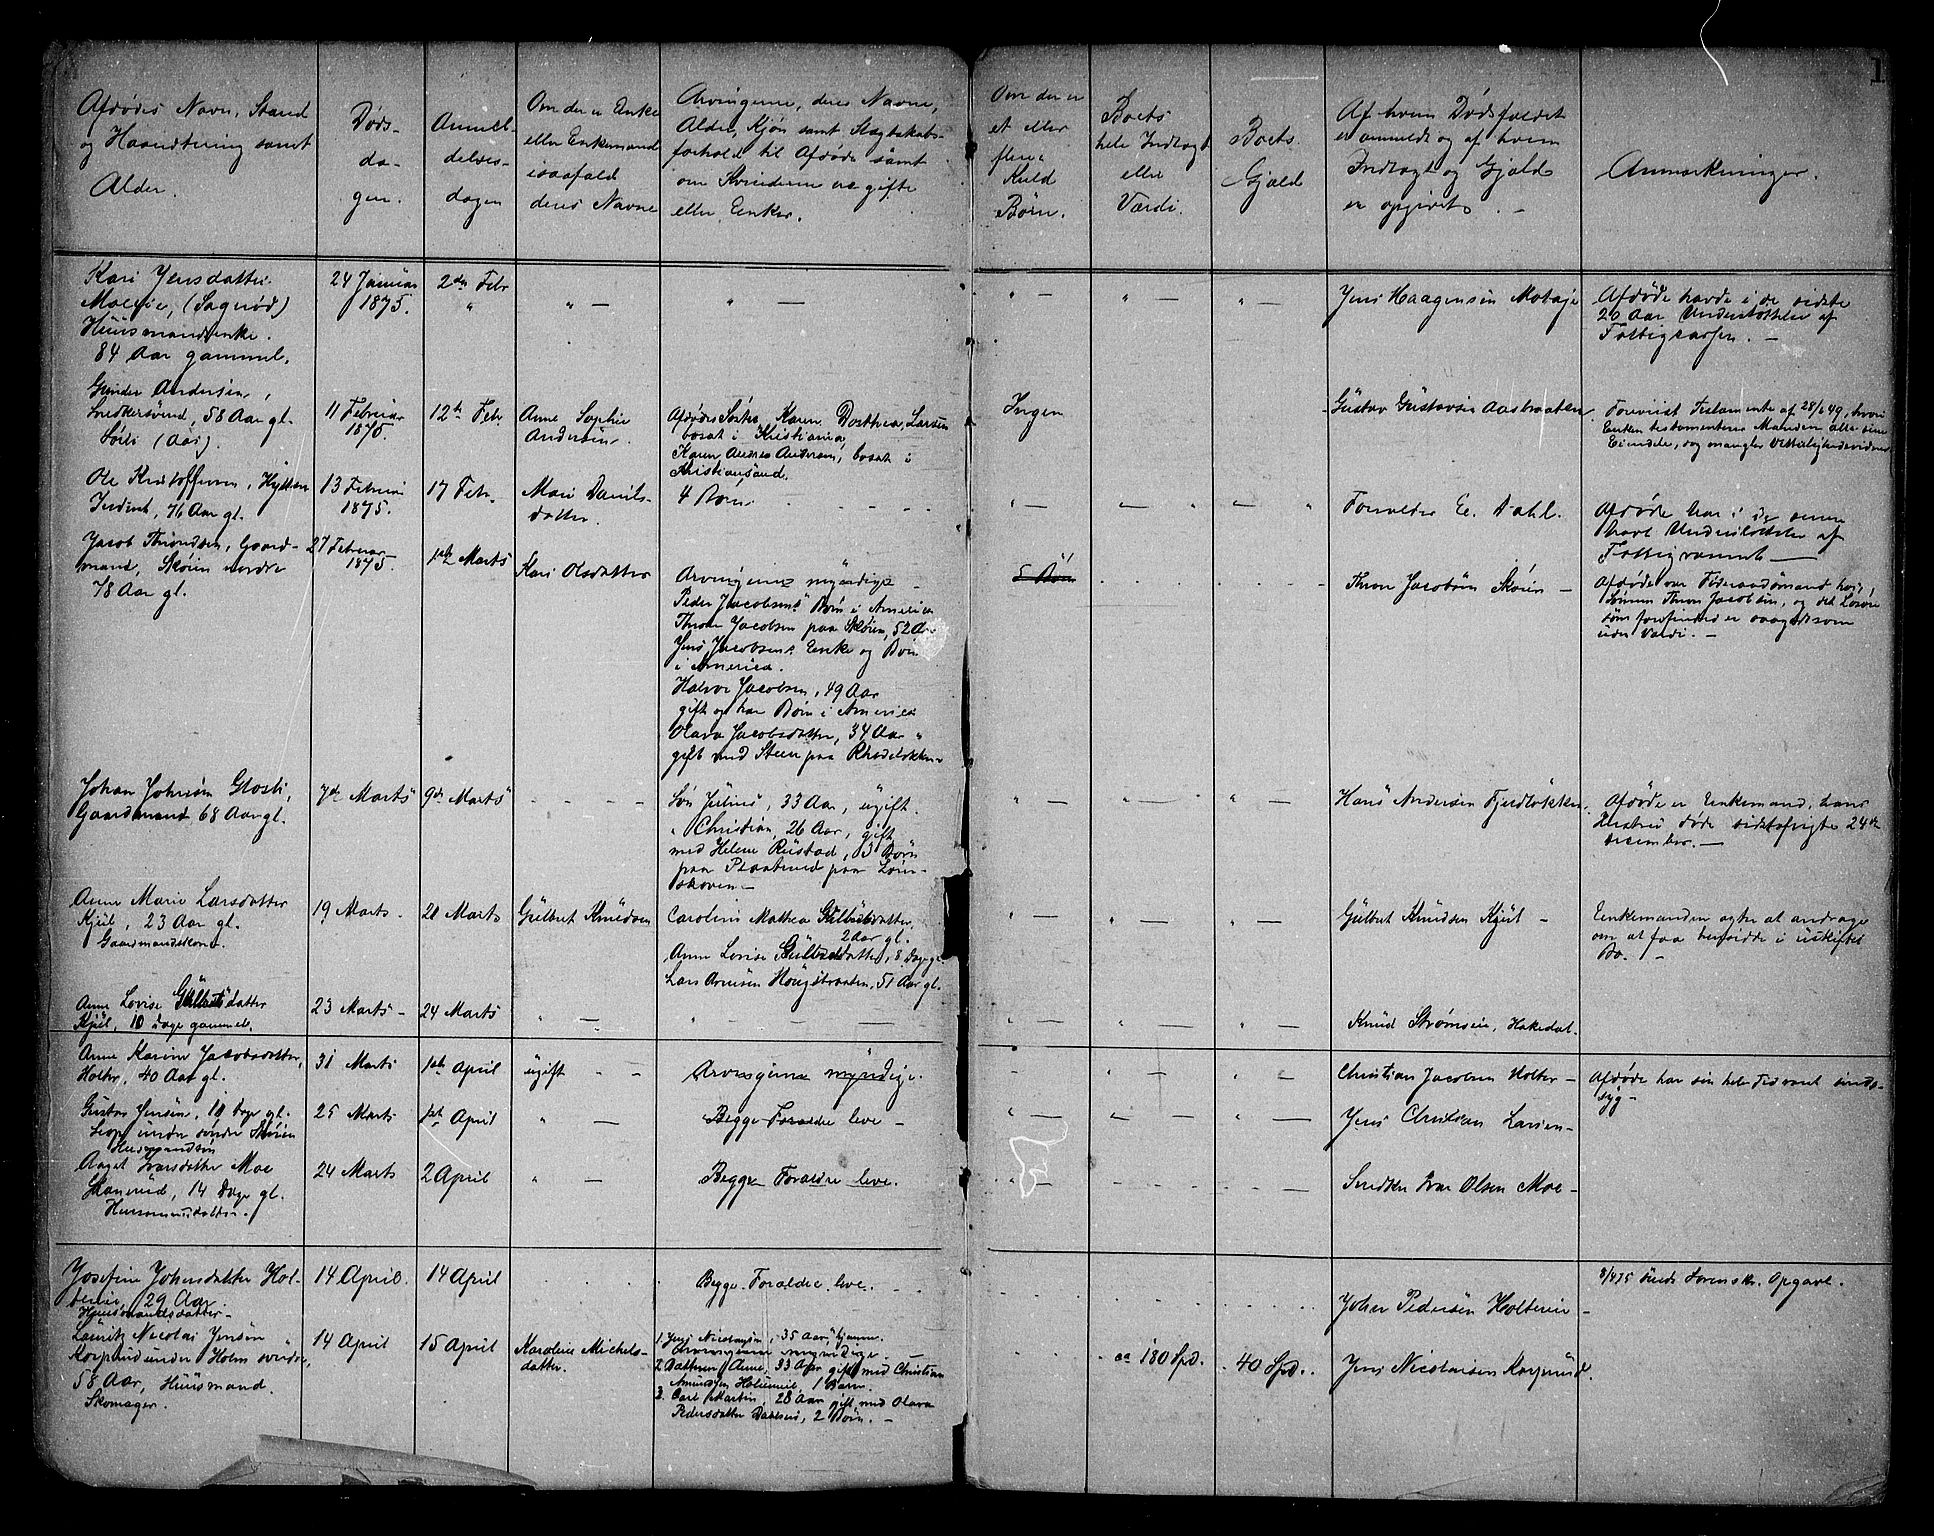 1
Afdødes Navn, Stand
og Haandtering samt
Alder.
Døds-
da-
gen.
Anmel-
delses-
dagen
Om der er Enke
eller Enkemand
isaafald
deres Navne
Arvingerne, deres Navne,
Alder, Kjøn samt Slægtskabs-
forhold til Afdøde samt
om Kvinderne er gifte
eller Enker.
Om der er
et eller
flere
Kuld
Børn.
Boets
hele Indtægt
eller
Værdi.
Boets
Gjæld
Af hvem Dødsfaldet
er anmeldt og af hvem
Indtægt og Gjæld
er opgivet. -
Anmærkninger.
Kari Jensdatter
Moeeie, (Sagerød)
Huusmandsenke.
84 Aar gammel.
24 Januar
1875.
2den Febr
" —
" —
" —
" —
" —
Jens Haagensen Mobæje
Afdøde havde i de sidste
20 Aar Understøttelse af
Fattigkassen. -
Gunder Andersen,
Snedkersvend, 58 Aar gl.
Sørli (Aas).
11 Februar
1875.
12te Feb.
Anne Sophie
Andersen.
Afdødes Søstre Karen Dorthea Larsen
bosat i Kristiania,
Karen Andrea Andersen, bosat i
Kristiansand.
Ingen
Gustav Gustavsen Aasbraaten
Forevist Testamente af 28/6 49, hvori
Enken testamenterer Manden alle sine
Eiendele, og mangler Vitterlighedsvidner
Ole Kristoffersen, Hytten
Inderst, 76 Aar gl.
13 Februar
1875.
17 Febr.
Mari Daniels-
datter.
4 Børn
Forvalter E. Dahl.
Afdøde har i de senere
havt Understøttelse af
Fattigvæsenet —
Jacob Throndsen, Gaard-
mand, Skøien nordre
78 Aar gl.
27 Februar
1875.
1ste Marts
Kari Olsdatter
Arvingerne myndige -
Peder Jacobsens Børn i America
Thron Jacobsen paa Skøien, 52 Aar
Jens Jacobsens Enke og Børn
i America.
Halvor Jacobsen, 49 Aar
gift og har Børn i America
Olava Jacobsdatter, 34 Aar
gift med Steen paa Rhodeløkken
5 Børn
Thron Jacobsen Skøien -
Afdøde var Føderaadsmand hos
Sønnen Thron Jacobsen, og det Løsøre
som forefindes er aagadt som
uden Værdi. -
Johan Johnsen Glosli,
Gaardmand 68 Aar gl.
7de Marts
9de Marts
Søn Julius, 33 Aar, ugift.
" Christian, 26 Aar, gift
med Helene Rustad, 3 Børn
paa Plaatrud paa Løren-
skoven -
" —
" —
" —
Hans Andersen Fjerdløkken.
Afdøde er Enkemand, hans
Hustru døde sidstafvigte 24de
December. -
Anne Marie Larsdatter
Kjul, 23 Aar gl.
Gaardmandskone.
19 Marts.
20 Marts
Gulbret Knudsen
Caroline Mathea Gulbretsdatter,
2 Aar gl.
Anne Lovise Gulbretsdatter, 8 Dage gl
Lars Arnesen Haugstranten, 51 Aar gl.
" —
" —
" —
Gulbret Knudsen Kjul -
Enkemanden agter at andrage
om at faa hensidde i uskiftet
Bo. -
Anne Lovise Gulbretsdatter
Kjul, 10 Dage gammel.
23 Marts -
24 Marts
" —
" —
" —
" —
Knud Strømsen, Hakedal.
Anne Karine Jacobsdatter,
Holter, 40 Aar gl.
31 Marts
1ste April
ugift - -
Arvingerne myndige.
Christian Jacobsen Holter -
Afdøde har sin hele Tid været sinds-
syg -
Gustav Jensen, 10 Dage gl.
under søndre Skøien
Huusmandssøn
25 Marts
1ste April
" —
Begge Forældre leve -
Jens Christian Larsen -
Aaget Ivarsdatter Moe
14 Dage gl.
Huusmandsdatter.
24 Marts
2 April
" —
Begge Forældre leve.
Snedker Ivar Olsen Moe -
Josefine Johnsdatter Hol-
tereie, 29 Aar.
Huusmandsdatter -
14 April.
14 April
Begge Forældre leve.
John Pedersen Holtereie -
8/4 75 sendt Sorenskr. Opgave.
Laurits Nicolai Jensen
Korperud under Holm søndre,
58 Aar, Huusmand.
Skomager.
14 April
15 April
Karoline Michels-
datter.
1. Jens Nicolaysen, 35 Aar, hjemme.
Arvingerne myndige. -
2. Datteren Anne, 33 Aar gift med Christian
Amundsen Holumeie, 1 Barn.
3. Carl Martin, 28 Aar gift med Olava
Pedersdatter Dahlseie, 2 Børn. -
ca 180 Spd.
40 Spd.
Jens Nicolaisen Korperud.